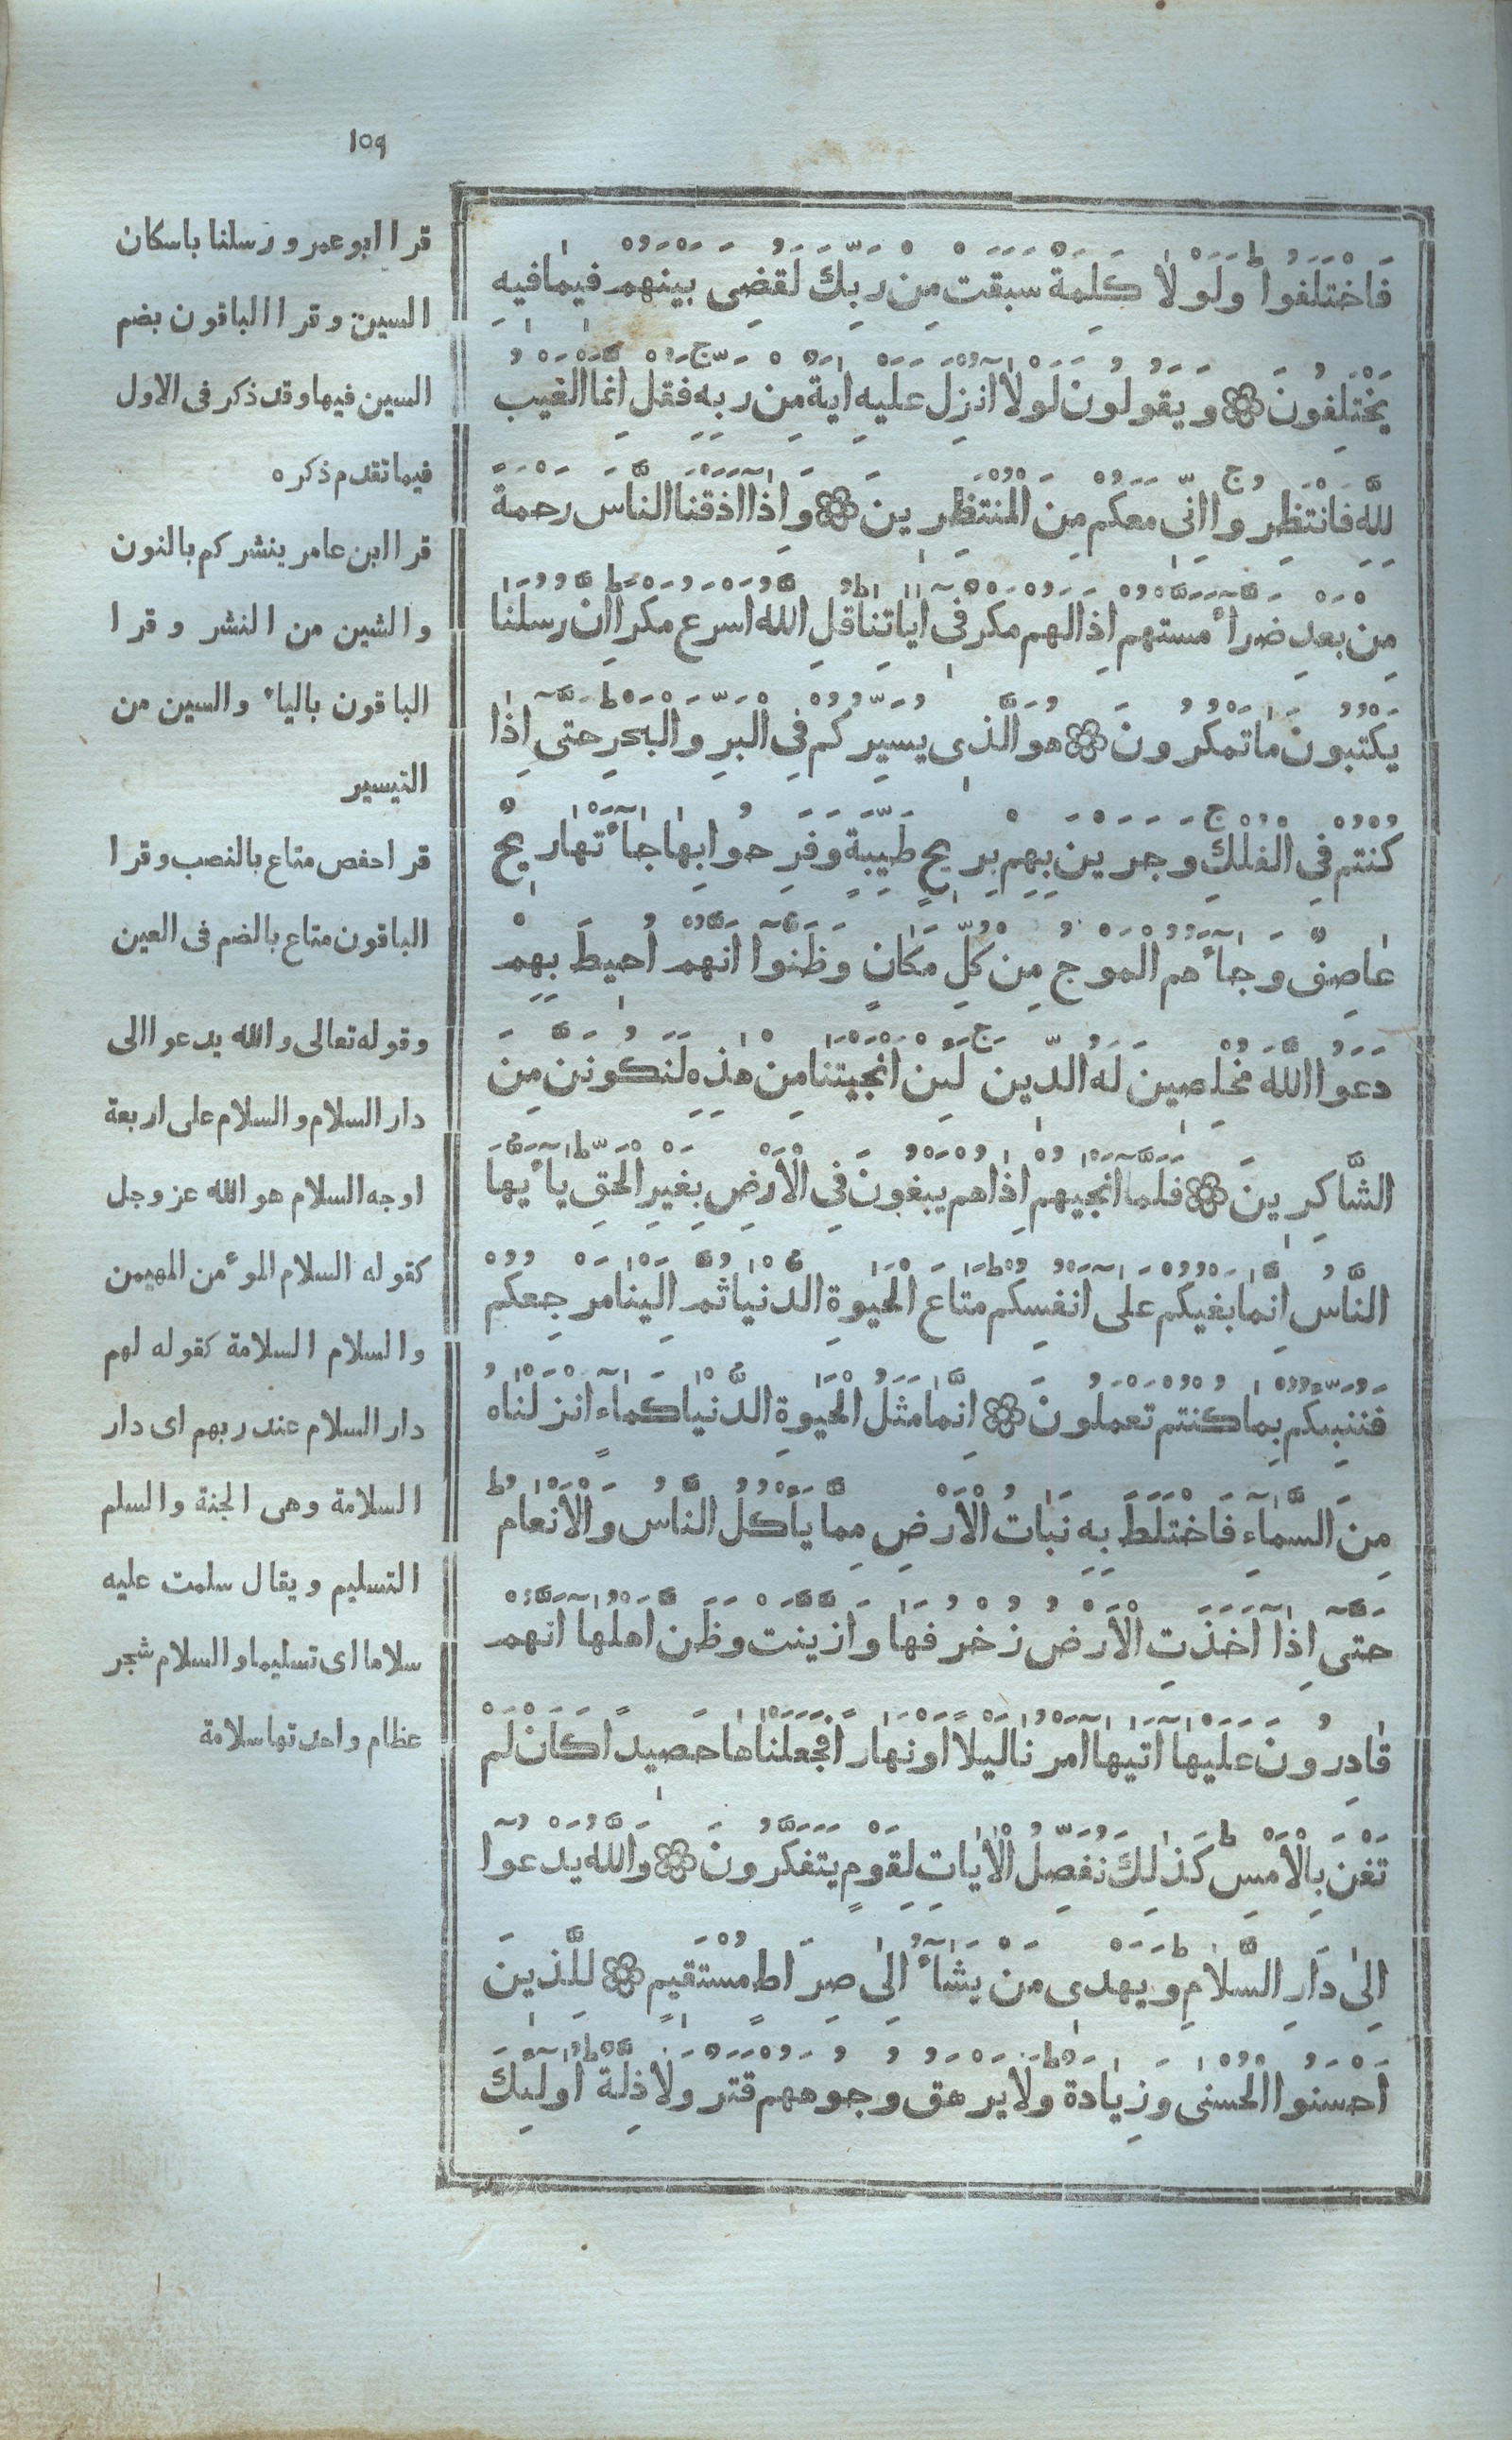 ١٥٩
فَاخْتَلَفُوا ط وَلَوْلَا كَلِمَةٌ سَبَقَتْ مِنْ رَبِّكَ لَقُضِىَ بَيْنَهُمْ فِيمَا فِيهِ
يَخْتَلِفُونَ ۞ وَيَقُولُونَ لَوْلَآ اُنْزِلَ عَلَيْهِ اٰيَةٌ مِنْ رَبِّهِ ج فَقُلْ اِنَّمَا الْغَيْبُ
لِلّٰهِ فَانْتَظِرُوا ج اِنِّى مَعَكُمْ مِنَ الْمُنْتَظِرِينَ ۞ وَاِذَآ اَذَقْنَا النَّاسَ رَحْمَةً
مِنْ بَعْدِ ضَرَّآءَ مَسَّتْهُمْ اِذَا لَهُمْ مَكْرٌ فِىٓ اٰيَاتِنَا ط قُلِ اللّٰهُ اَسْرَعُ مَكْرًا ط اِنَّ رُسُلَنَا
يَكْتُبُونَ مَا تَمْكُرُونَ ۞ هُوَ الَّذِى يُسَيِّرُكُمْ فِى الْبَرِّ وَالْبَحْرِ ط حَتَّىٓ اِذَا
كُنْتُمْ فِى الْفُلْكِ ج وَجَرَيْنَ بِهِمْ بِرِيحٍ طَيِّبَةٍ وَفَرِحُوا بِهَا جَآءَتْهَا رِيحٌ
عَاصِفٌ وَجَآءَهُمُ الْمَوْجُ مِنْ كُلِّ مَكَانٍ وَظَنُّوٓا اَنَّهُمْ اُحِيطَ بِهِمْ
دَعَوُا اللّٰهَ مُخْلِصِينَ لَهُ الدِّينَ ج لَئِنْ اَنْجَيْتَنَا مِنْ هٰذِهِ لَنَكُونَنَّ مِنَ
الشَّاكِرِينَ ۞ فَلَمَّآ اَنْجٰيهُمْ اِذَا هُمْ يَبْغُونَ فِى الْاَرْضِ بِغَيْرِ الْحَقِّ ط يَآءَيُّهَا
النَّاسُ اِنَّمَا بَغْيُكُمْ عَلٰىٓ اَنْفُسِكُمْ ط مَتَاعَ الْحَيٰوةِ الدُّنْيَا ثُمَّ اِلَيْنَا مَرْجِعُكُمْ
فَنُنَبِّئُكُمْ بِمَا كُنْتُمْ تَعْمَلُونَ ۞ اِنَّمَا مَثَلُ الْحَيٰوةِ الدُّنْيَا كَمَآءٍ اَنْزَلْنَاهُ
مِنَ السَّمَآءِ فَاخْتَلَطَ بِهِ نَبَاتُ الْاَرْضِ مِمَّا يَأْكُلُ النَّاسُ وَالْاَنْعَامُ ط
حَتَّىٓ اِذَآ اَخَذَتِ الْاَرْضُ زُخْرُفَهَا وَازَّيَّنَتْ وَظَنَّ اَهْلُهَآ اَنَّهُمْ
قَادِرُونَ عَلَيْهَآ اَتٰيهَآ اَمْرُنَا لَيْلًا اَوْ نَهَارًا فَجَعَلْنَاهَا حَصِيدًا كَاَنْ لَمْ
تَغْنَ بِالْاَمْسِ ط كَذٰلِكَ نُفَصِّلُ الْاٰيَاتِ لِقَوْمٍ يَتَفَكَّرُونَ ۞ وَاللّٰهُ يَدْعُوٓا
اِلٰى دَارِ السَّلَامِ ط وَيَهْدِى مَنْ يَشَآءُ اِلٰى صِرَاطٍ مُسْتَقِيمٍ ۞ لِلَّذِينَ
اَحْسَنُوا الْحُسْنٰى وَزِيَادَةٌ ط وَلَا يَرْهَقُ وُجُوهَهُمْ قَتَرٌ وَلَا ذِلَّةٌ ط اُولٰٓئِكَ
قرا ابو عمرو رسلنا باسكان
السين وقرا الباقون بضم
السين فيها وقد ذكر فى الاول
فيما تقدم ذكره
قرا ابن عامر ينشركم بالنون
والشين من النشر وقرا
الباقون بالياء والسين من
التيسير
قرا حفص متاع بالنصب وقرا
الباقون متاع بالضم فى العين
وقوله تعالى والله يدعوا الى
دار السلام والسلام على اربعة
اوجه السلام هو الله عز وجل
كقوله السلام المؤمن المهيمن
والسلام السلامة كقوله لهم
دار السلام عند ربهم اى دار
السلامة وهى الجنة والسلم
التسليم ويقال سلمت عليه
سلاما اى تسليما والسلام شجر
عظام واحدتها سلامة